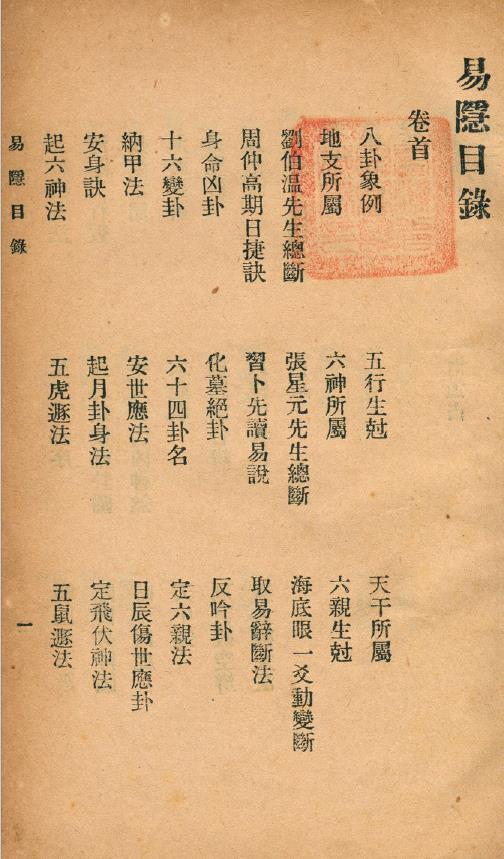 易隱目錄
卷首
八卦象例
五行生尅
天干所屬
地支所屬
六神所屬
六親生尅
劉伯温先生總斷
張星元先生總斷
海底眼一爻動變斷
周仲高期日捷訣
習卜先讀易說
取易辭斷法
身命凶卦
化墓絕卦
反吟卦
十六變卦
六十四卦名
定六親法
納甲法
安世應法
日辰傷世應卦
安身訣
起月卦身法
定飛伏神法
起六神法
五虎遯法
五鼠遯法
易隱目錄
一